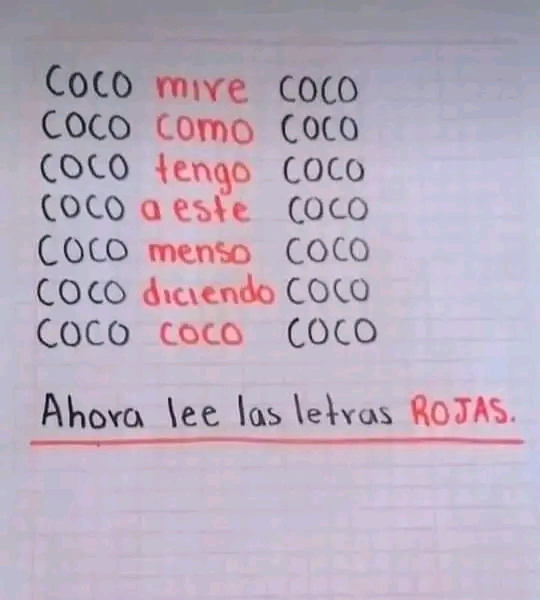 COCO mire COCO
COCO como COCO
COCO tengo COCO
COCO a este COCO
COCO menso COCO
COCO diciendo COCO
COCO coco COCO
Ahora lee las letras ROJAS.